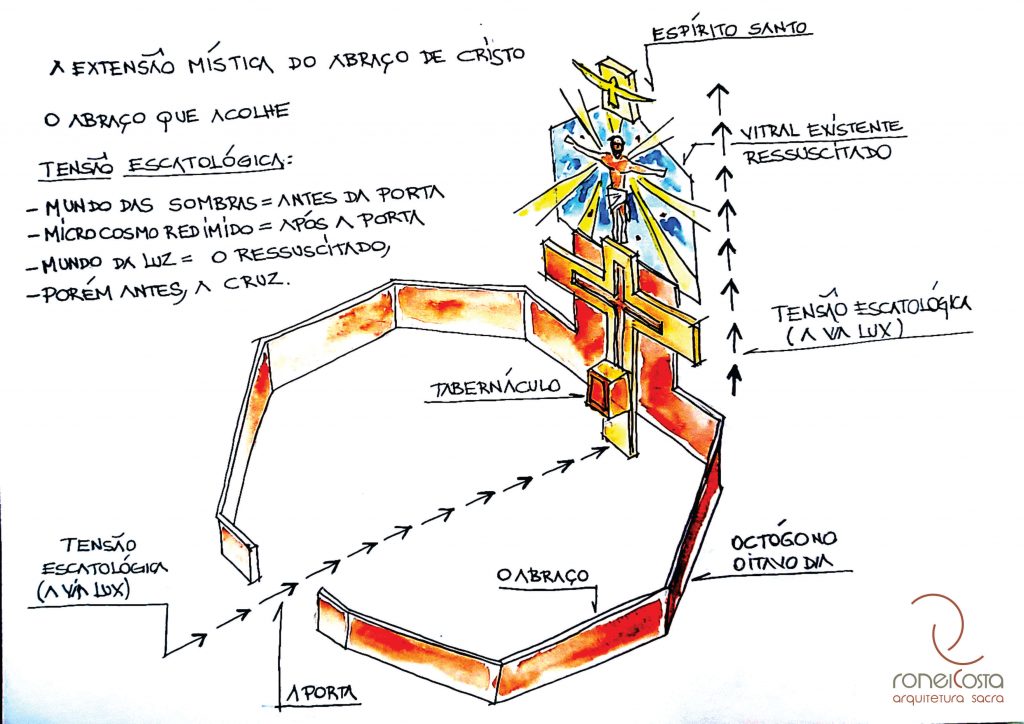 A EXTENSÃO MÍSTICA DO ABRAÇO DE CRISTO
O ABRAÇO QUE ACOLHE
TENSÃO ESCATOLÓGICA:
- MUNDO DAS SOMBRAS = ANTES DA PORTA
- MICROCOSMO REDIMIDO = APÓS A PORTA
- MUNDO DA LUZ = O RESSUSCITADO,
- PORÉM ANTES, A CRUZ.
ESPÍRITO SANTO
VITRAL EXISTENTE
RESSUSCITADO
TENSÃO ESCATOLÓGICA
(A VIA LUX)
TABERNÁCULO
TENSÃO
ESCATOLÓGICA
(A VIA LUX)
O ABRAÇO
OCTÓGONO
OITAVO DIA
A PORTA
roneiCosta
arquitetura sacra